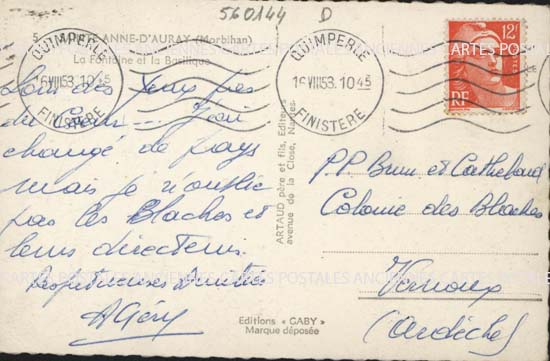 560144 D
5 ANNE-D'AURAY (Morbihan)
La Fontaine et la Basilique
QUIMPERLE
16 VIII 53. 10 45
FINISTERE
QUIMPERLE
16 VIII 53. 10 45
FINISTERE
12F
RF
Loin des yeux, près
du Cœur... J'ai
changé de pays
mais je n'oublie
pas les Blaches et
leurs directeurs.
Respectueuses Amitiés
AGéry
ARTAUD père et fils, Editeurs
avenue de la Close, Nantes
Editions "GABY"
Marque déposée
P.P. Brun et
Colonie des Blaches
Vernoux
(Ardèche)
CARTES POSTALES ANCIENNES CARTES POSTALES ANCIENNES CARTES POSTALES